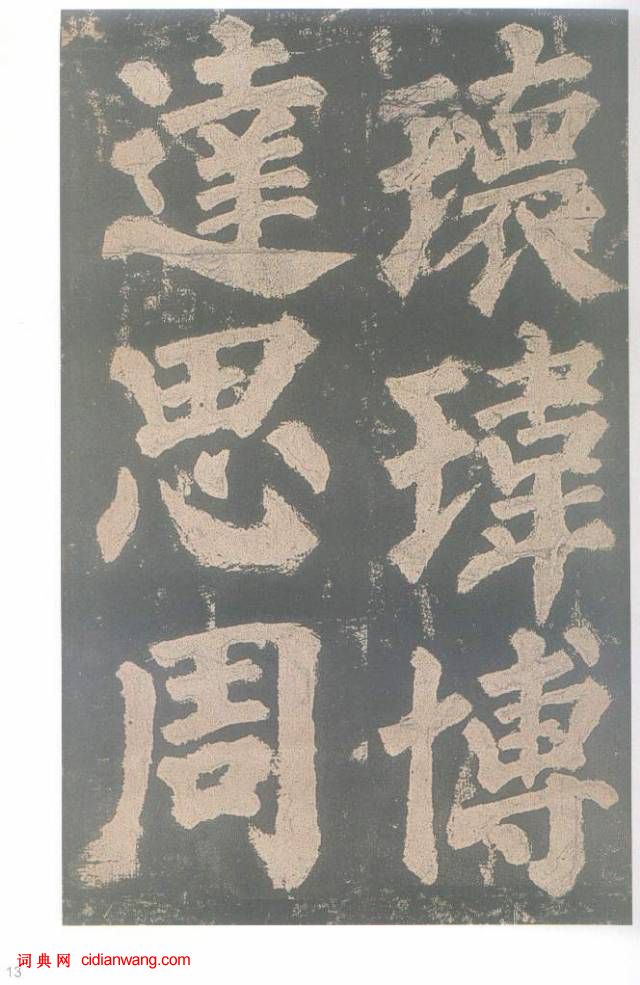 瓌瑋博
達思周
词典网 cidianwang.com
13